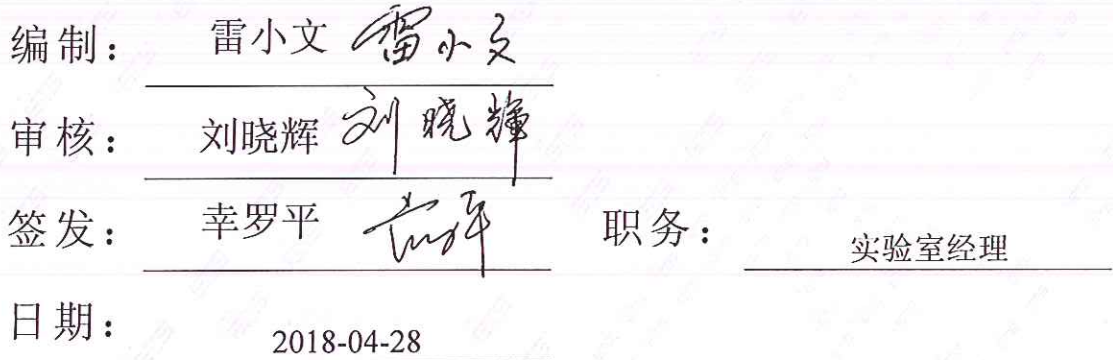 编制： 雷小文 雷小文
审核： 刘晓辉 刘晓辉
签发： 幸罗平 职务： 实验室经理
日期： 2018-04-28